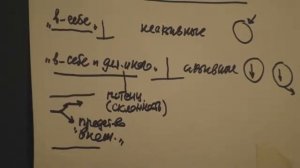 „в-себе"
неактивные
„в-себе и для иного"
активные
потенц.
(склонность)
предст-во
„вовне"